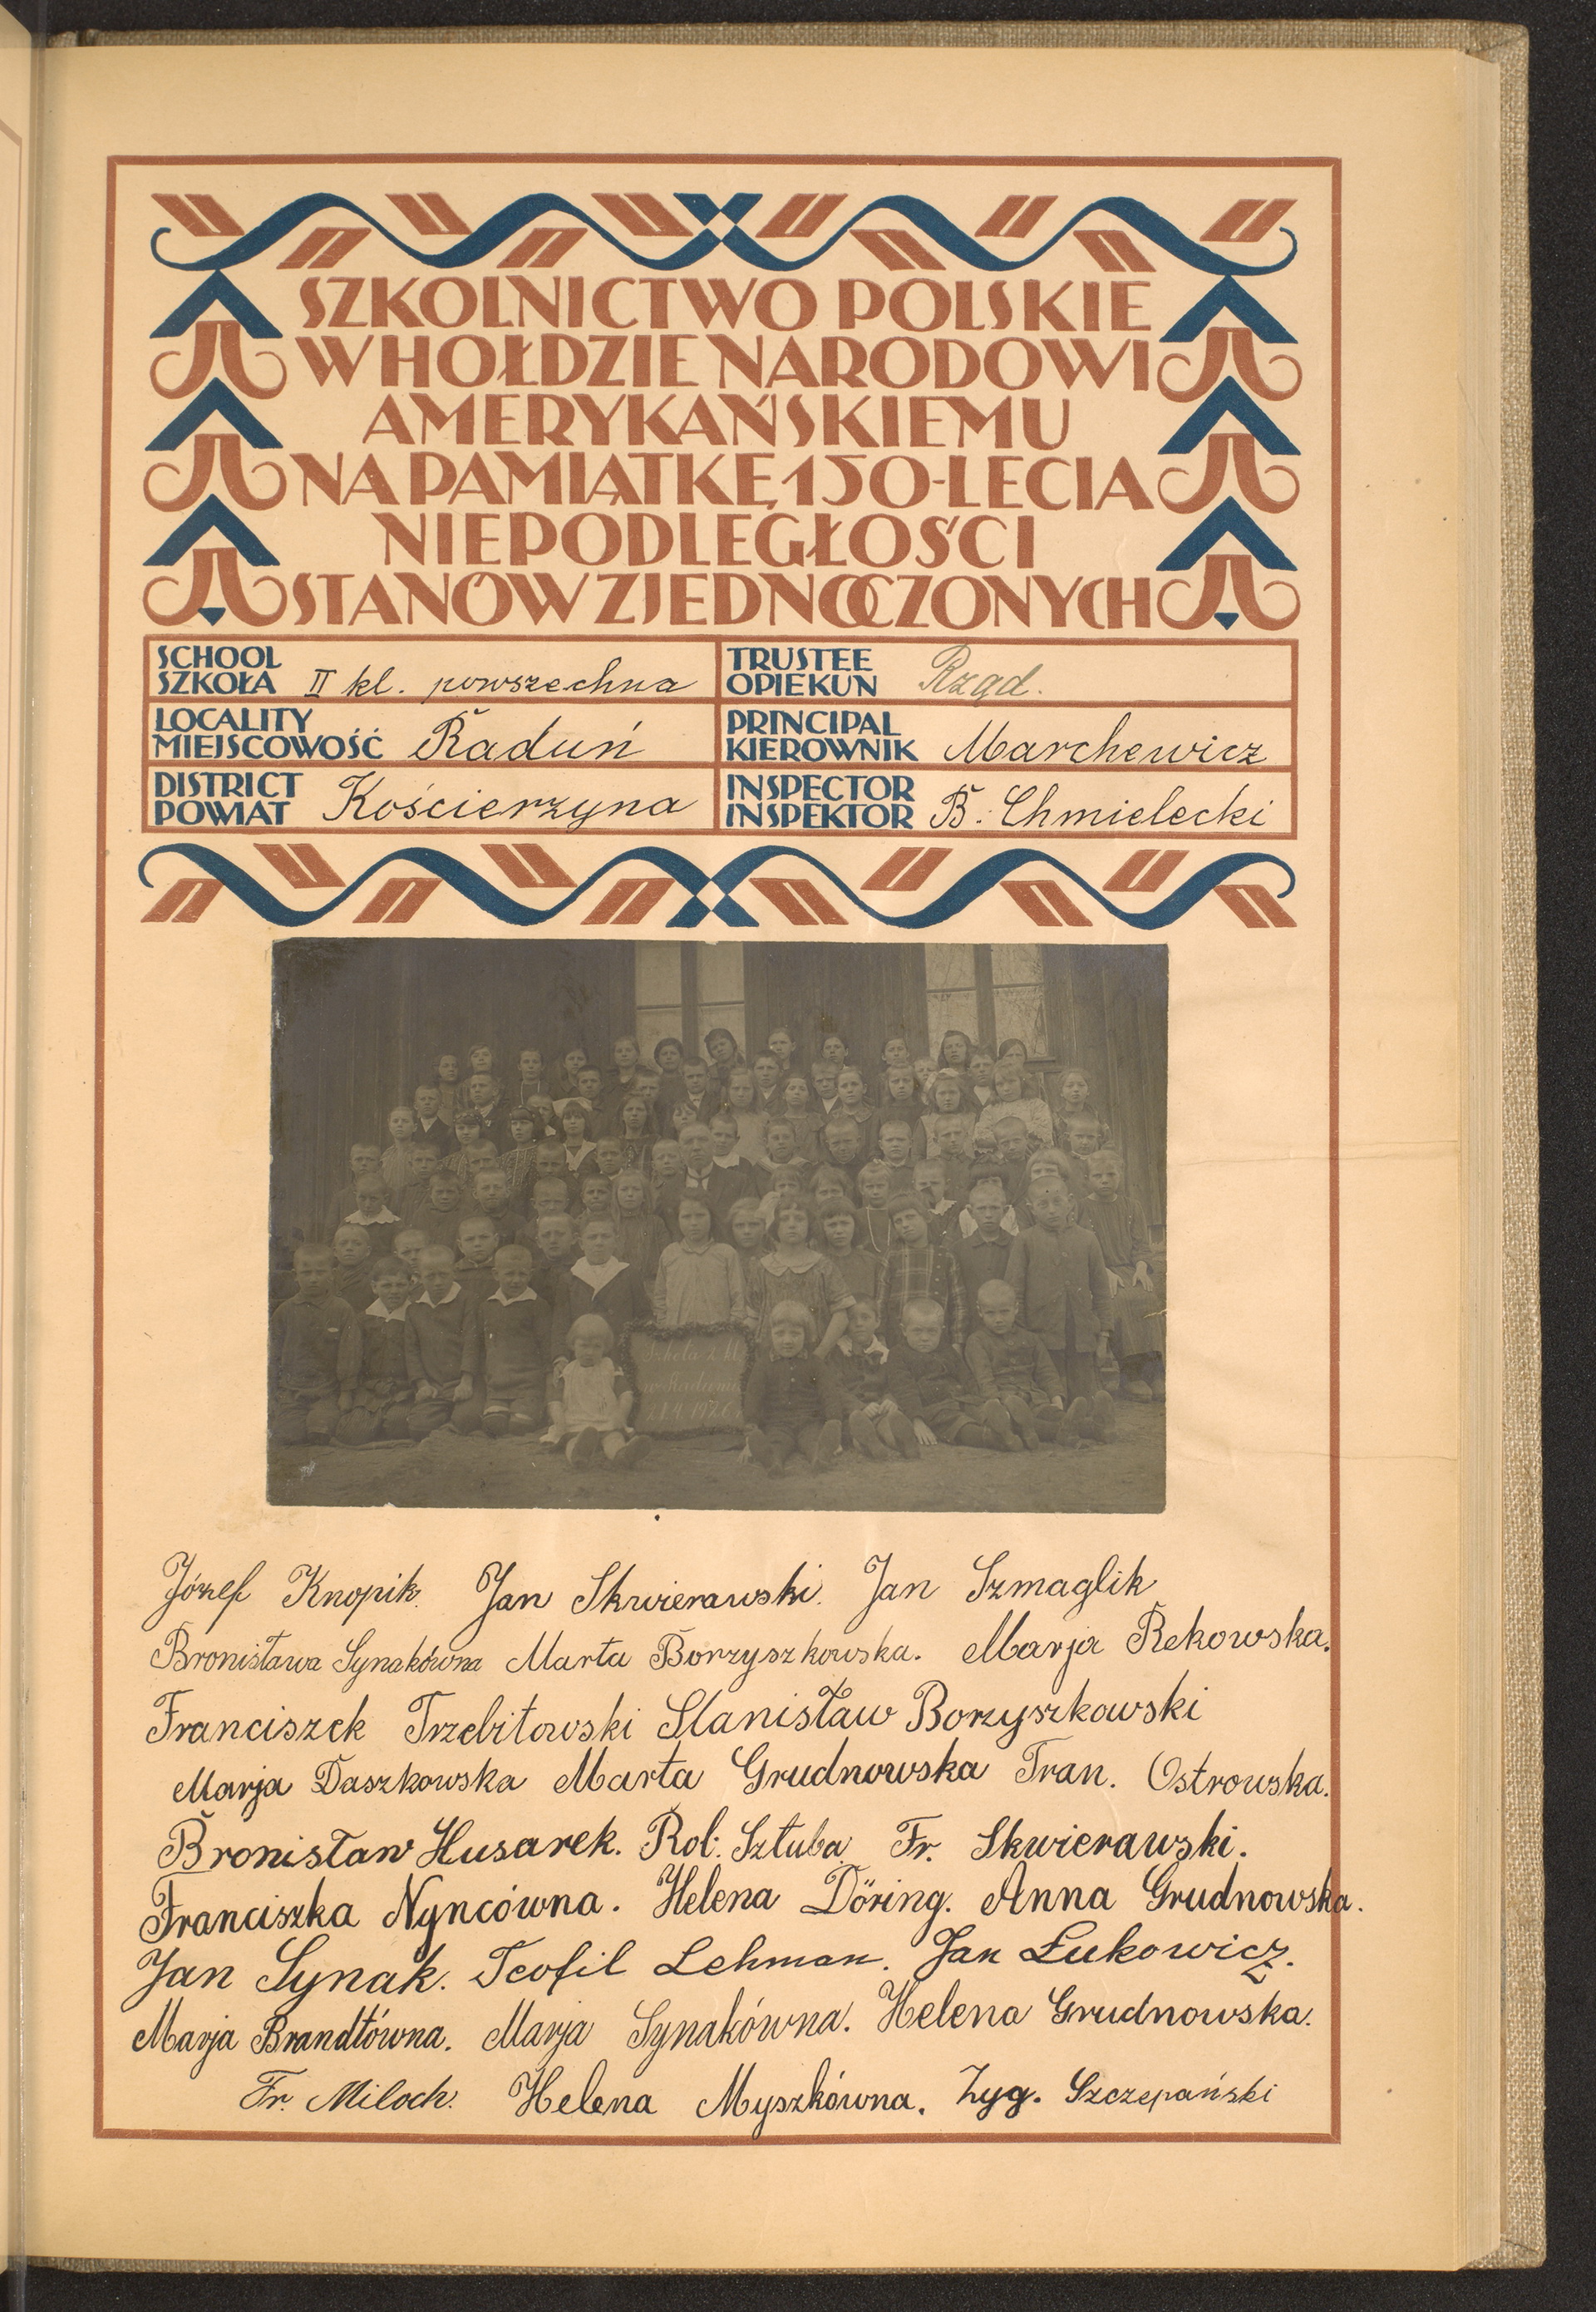 SZKOLNICTWO POLSKIE
W HOŁDZIE NARODOWI
AMERYKAŃSKIEMU
NA PAMIĄTKĘ 150-LECIA
NIEPODLEGŁOŚCI
STANÓW ZJEDNOCZONYCH
SCHOOL
SZKOŁA II kl. powszechna
TRUSTEE
OPIEKUN Rząd.
LOCALITY
MIEJSCOWOŚĆ Raduń
PRINCIPAL
KIEROWNIK Marchewicz
DISTRICT
POWIAT Kościerzyna
INSPECTOR
INSPEKTOR B. Chmielecki
Szkoła 2 kl
w Raduniu
1926
Józef Knopik. Jan Skwierawski. Jan Szmaglik
Bronisława Synakówna Marta Borzyszkowska. Marja Rekowska.
Franciszek Trzebitowski Stanisław Borzyszkowski
Marja Daszkowska Marta Grudnowska Fran. Ostrowska.
Bronisław Husarek. Rob. Sztuba Fr. Skwierawski.
Franciszka Nyncówna. Helena Döring. Anna Grudnowska.
Jan Synak. Teofil Lehman. Jan Łukowicz.
Marja Brandtówna. Marja Synakówna. Helena Grudnowska.
Fr. Miloch. Helena Myszkówna. Zyg. Szczepański